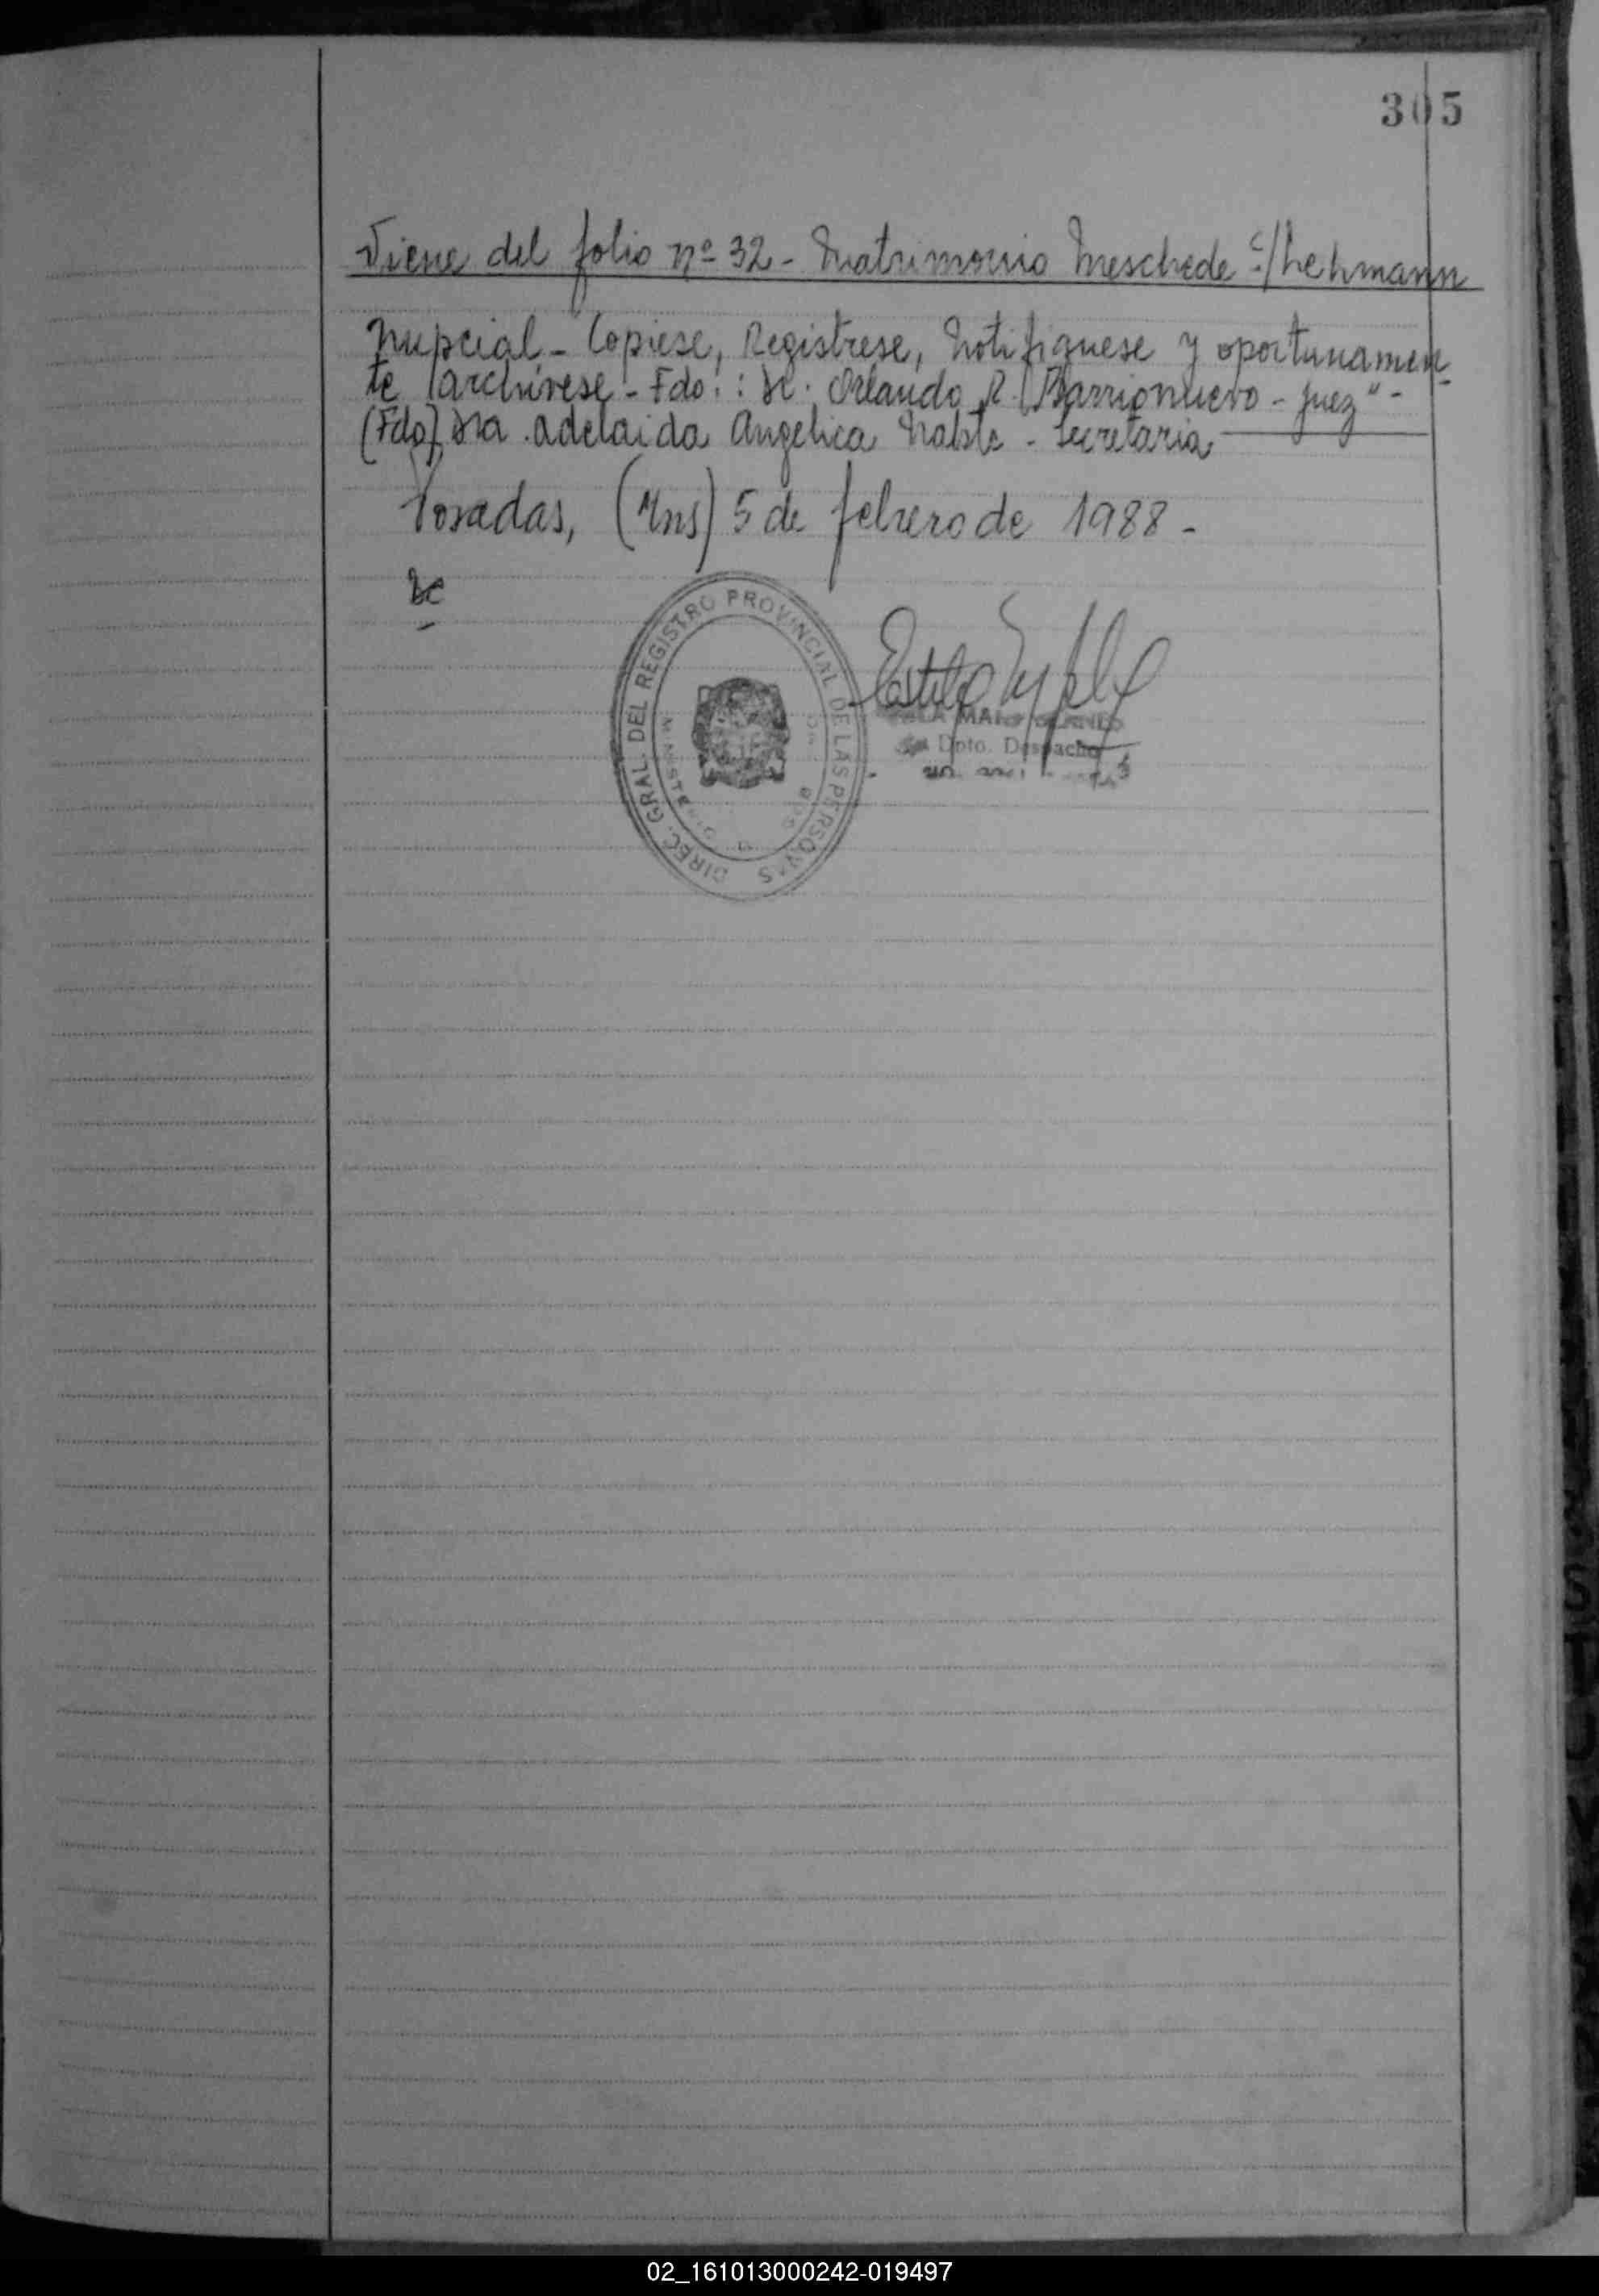 305
Viene del folio nº 32 - Matrimonio Meschede c/ Lehmann
nupcial - Copiese, Registrese, Notifiquese y oportunamen-
te archivese - Fdo: : Dr. Orlando R. Barrionuevo - Juez" -
(Fdo) Dra. Adelaida Angelica - Secretaria
Posadas, (Mns) 5 de febrero de 1988 -
DIREC. GRAL. DEL REGISTRO PROVINCIAL DE LAS PERSONAS
Dpto. Despacho
02_161013000242-019497